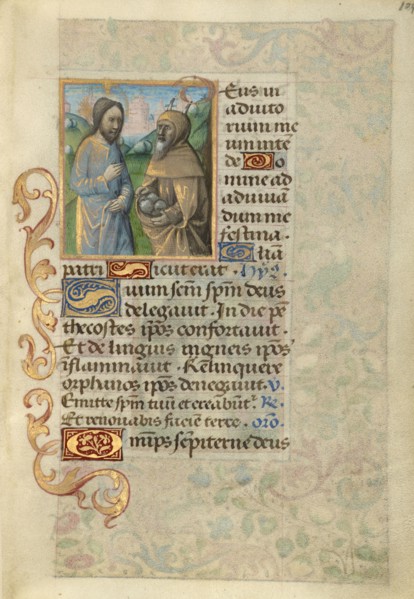 Eus in
adiuto
rium me
um inte
de Do
mine ad
adiuuā
dum me
festina.
Glīa
patri Sicut erat. Hȳs.
Suum scm̄ spm̄ deus
delegauit. In die pē
thecostes ip̄os confortauit.
Et de linguis ingneis ip̄os
īflammauit. Relinquere
orphanos ip̄os denegauit. V.
Emitte spm̄ tuū et creabūt̄. Re.
Et renouabis faciē terre. oro.
Omīps sēpiterne deus